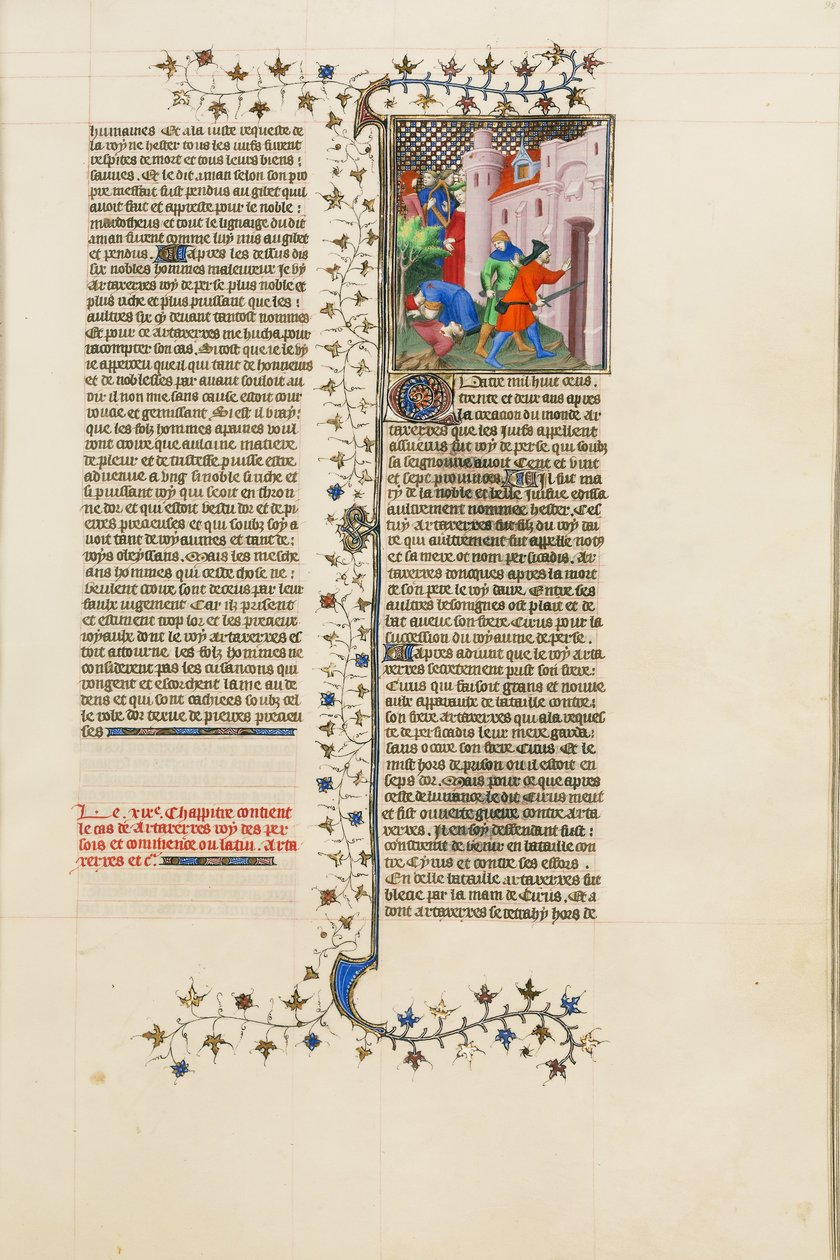 98
humaines Et a la iuste requeste de
la royne hester tous les iuifs furent
respites de mort et tous leurs biens :
sauues . Et le dit aman selon son pro
pre meffait fust pendus au gibet quil
auoit fait et appreste pour le noble :
mardocheus et tout le lignaige du dit
aman furent comme luy mis au gibet
et pendus . Apres les dessus dis
six nobles hommes maleureux ie vy
Artaxerxes roy de perse plus noble et
plus riche et plus puissant que les :
aultres six cy deuant tantost nommes
Et pour ce artaxerxes me hucha pour
racompter son cas . Si tost que ie le vy
ie apperceu que il qui tant de honneurs
et de noblesses par auant souloit au
oir il non mie sans cause estoit cour
roucie et gemissant . Si est il vray :
que les folz hommes apaines voul
ront croire que aulcune matiere
de pleur et de tristesse puisse estre
aduenue a vng si noble si riche et
si puissant roy qui seoit en thron
ne dor et qui estoit vestu dor et de pi
erres precieuses et qui soubz soy a
uoit tant de royaumes et tant de :
roys obeyssans . Mais les mesche
ans hommes qui ceste chose ne :
veulent croire sont deceus par leur
faulx iugement Car ilz prisent
et estiment trop lor et les precieux
ioyaulx dont le roy artaxerxes es
toit attourne les folz hommes ne
considerent pas les cusancons qui
rongent et escorchent lame au de
dens et qui sont cachiees soubz cel
le robe dor texue de pierres precieu
ses
Le . xixe . Chappitre contient
le cas de Artaxerxes roy des per
sois et commence ou latin . Arta
xerxes et c.
Quatre mil huit cens .
trente et deux ans apres
la creation du monde Ar
taxerxes que les iuifs appellent
assuerus fut roy de perse qui soubz
sa seignourie auoit Cent et vint
et sept prouinces . Il fut ma
ry de la noble et belle iuifue edissa
aultrement nommee hester . Ces
tuy Artaxerxes fut filz du roy dai
re qui aultrement fut appelle noth
et sa mere ot nom persicadis . Ar
taxerxes doncques apres la mort
de son pere le roy daire Entre ses
aultres besoingnes ost plait et de
bat auecques son frere Cirus pour la
succession du royaume de perse .
Apres aduint que le roy arta
xerxes secretement prist son frere :
Cirus qui faisoit grans et nouue
aux appareilz de bataille contre :
son frere artaxerxes qui a la reques
te de persicadis leur mere garda :
sans occire son frere Cirus Et le
mist hors de prison ou il estoit en
seps dor . Mais pour ce que apres
ceste deliurance le dit Cirus meut
et fist ouuerte guerre contre Arta
xerxes . Il en soy deffendant fust :
constraint de venir en bataille con
tre Cyrus et contre ses effors .
En celle bataille artaxerxes fut
blecie par la main de Cirus . Et a
dont artaxerxes se retrahy hors de